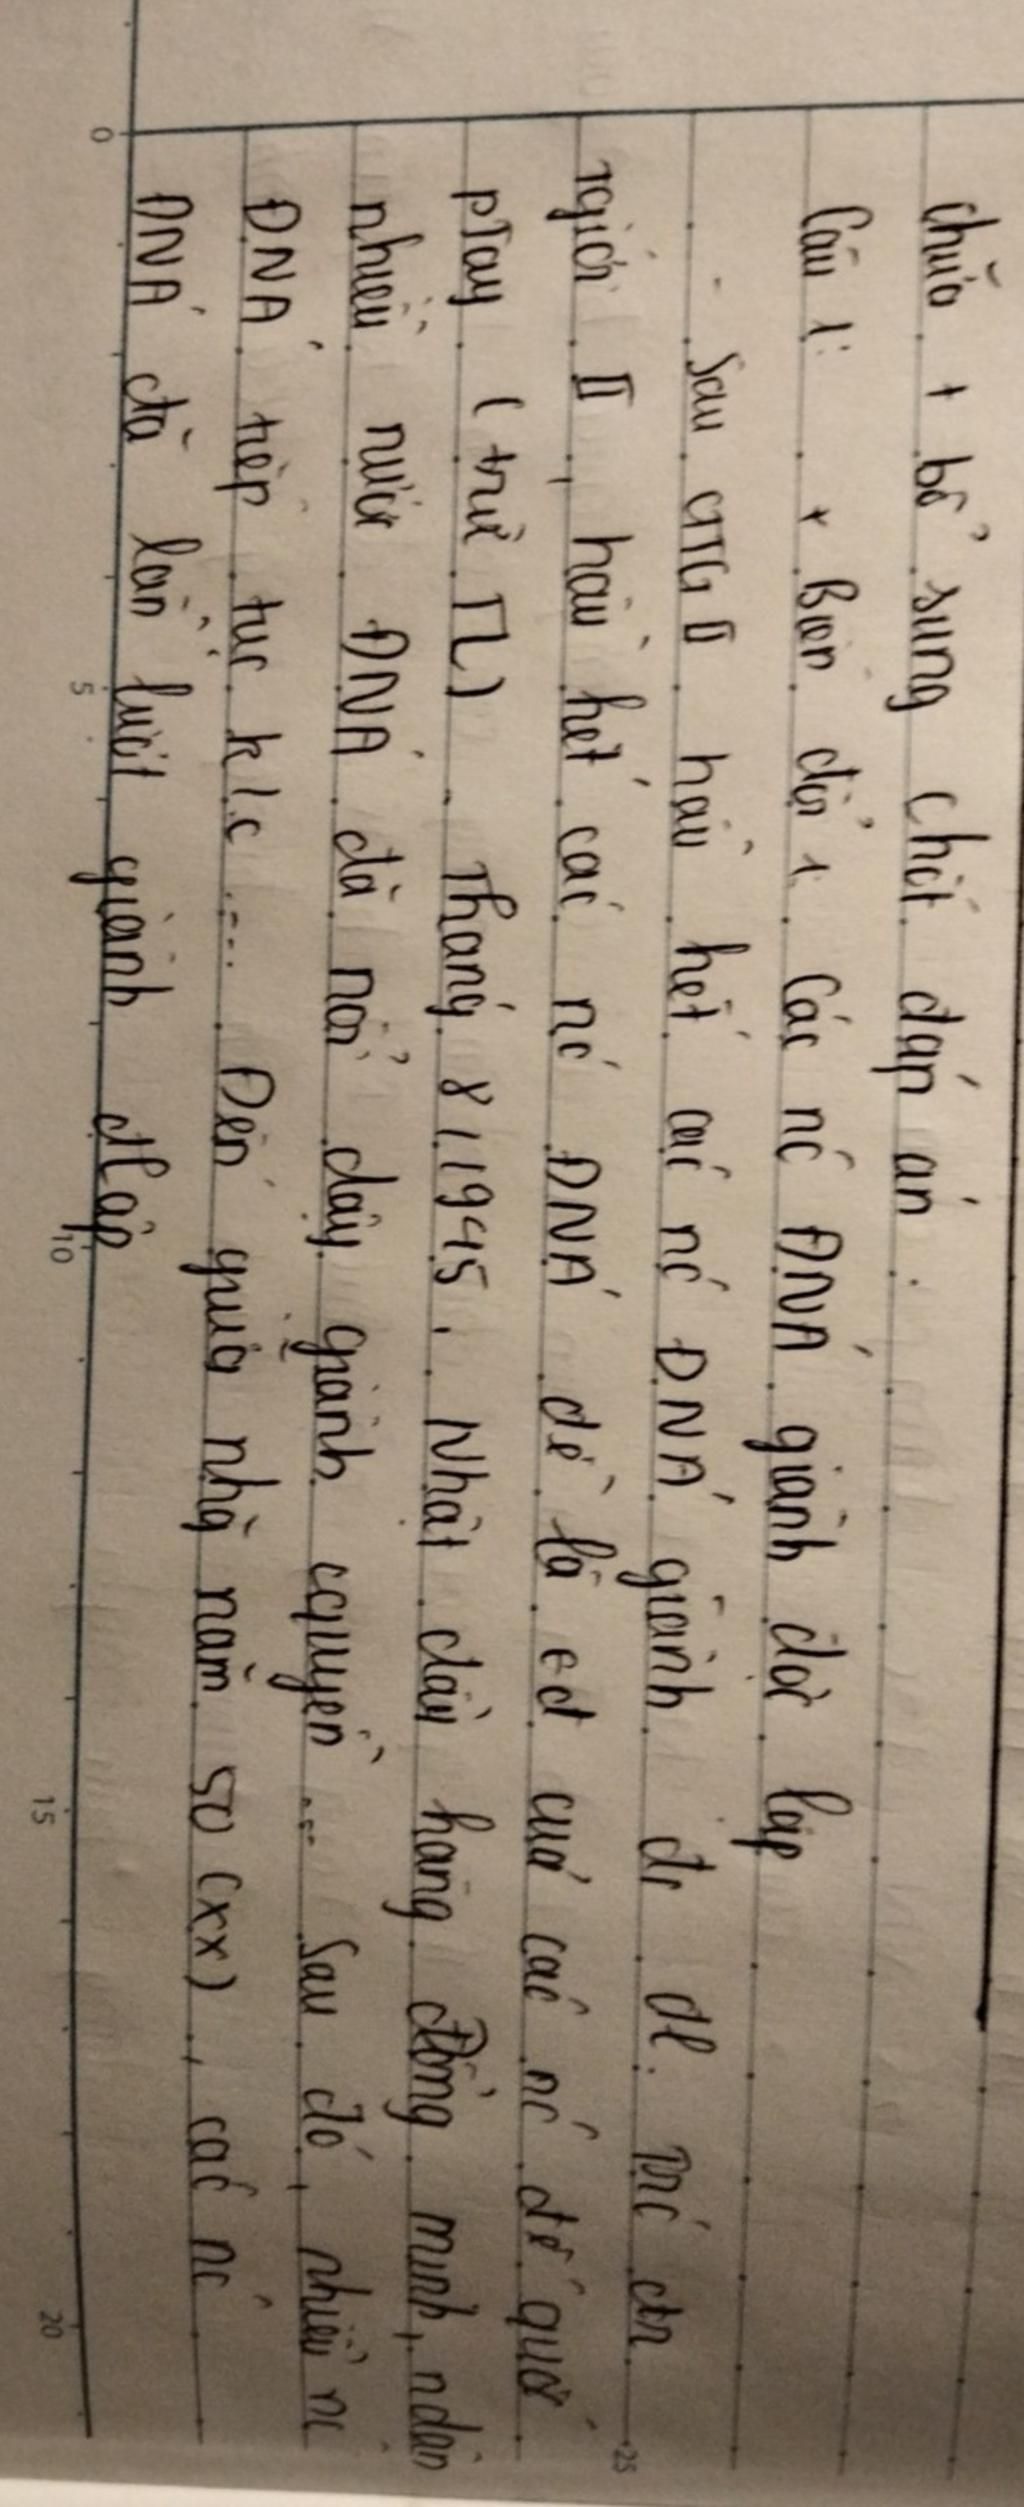 Chữa + bổ sung chốt đáp án :
Câu 1: + Biến đổi 1. Các nc ĐNÁ giành độc lập
- Sau CTTG II hầu hết các nc ĐNÁ giành đc đl. Trc ctr
Tgiới II, hầu hết các nc ĐNÁ đề là tđ của các nc đế quốc
pTây (trừ TL). Tháng 8/1945. Nhật đầu hàng đồng minh, ndân
nhiều nước ĐNÁ đã nổi dậy giành cquyền ... Sau đó, nhiều nc
ĐNÁ tiếp tục k/c .... Đến giữa những năm 50 (XX), các nc
ĐNÁ đã lần lượt giành đlập
0
5
10
15
20
25